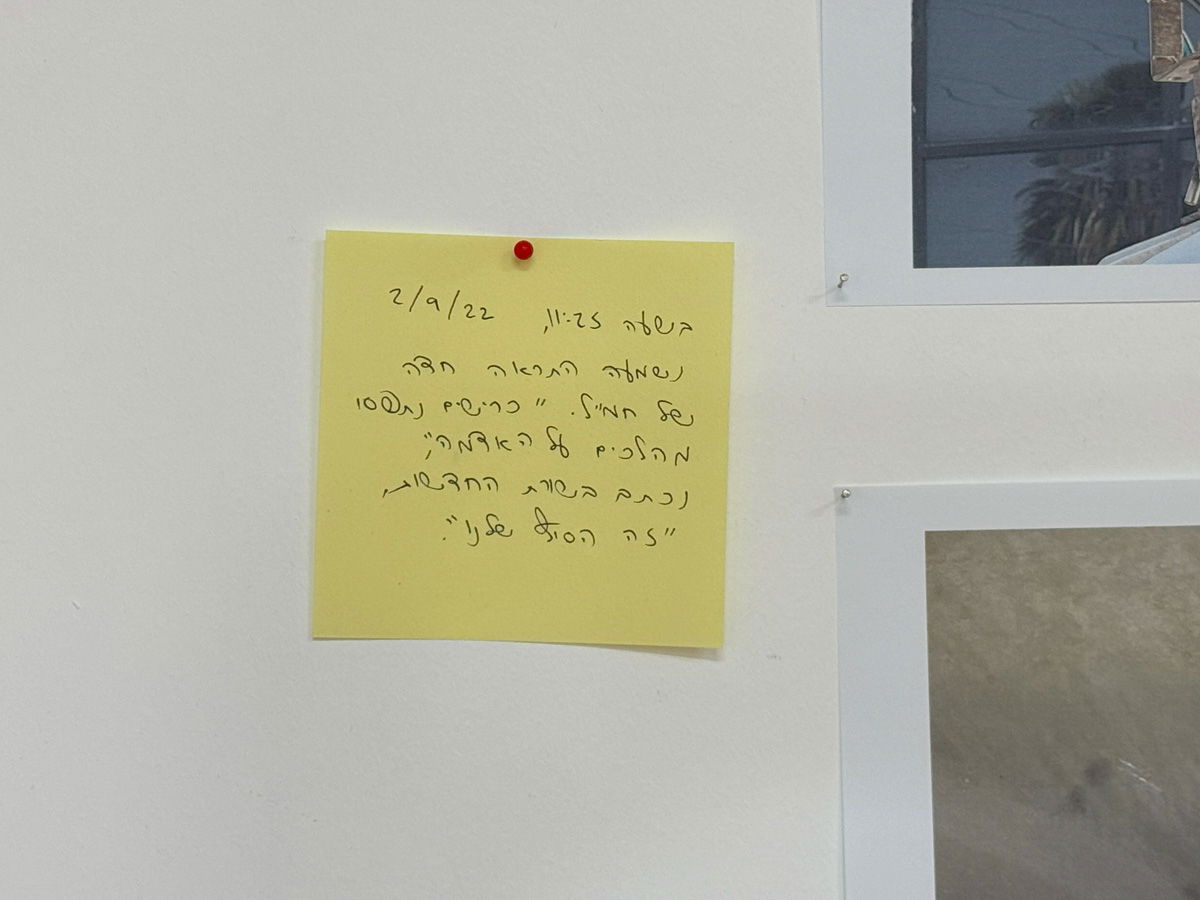 בשעה 11:25, 2/9/22
נשמעה התראה חדה
של חמ״ל. "כרישים נתפסו
מהלכים על האדמה",
נכתב בשורת החדשות,
"זה הסוף שלנו".